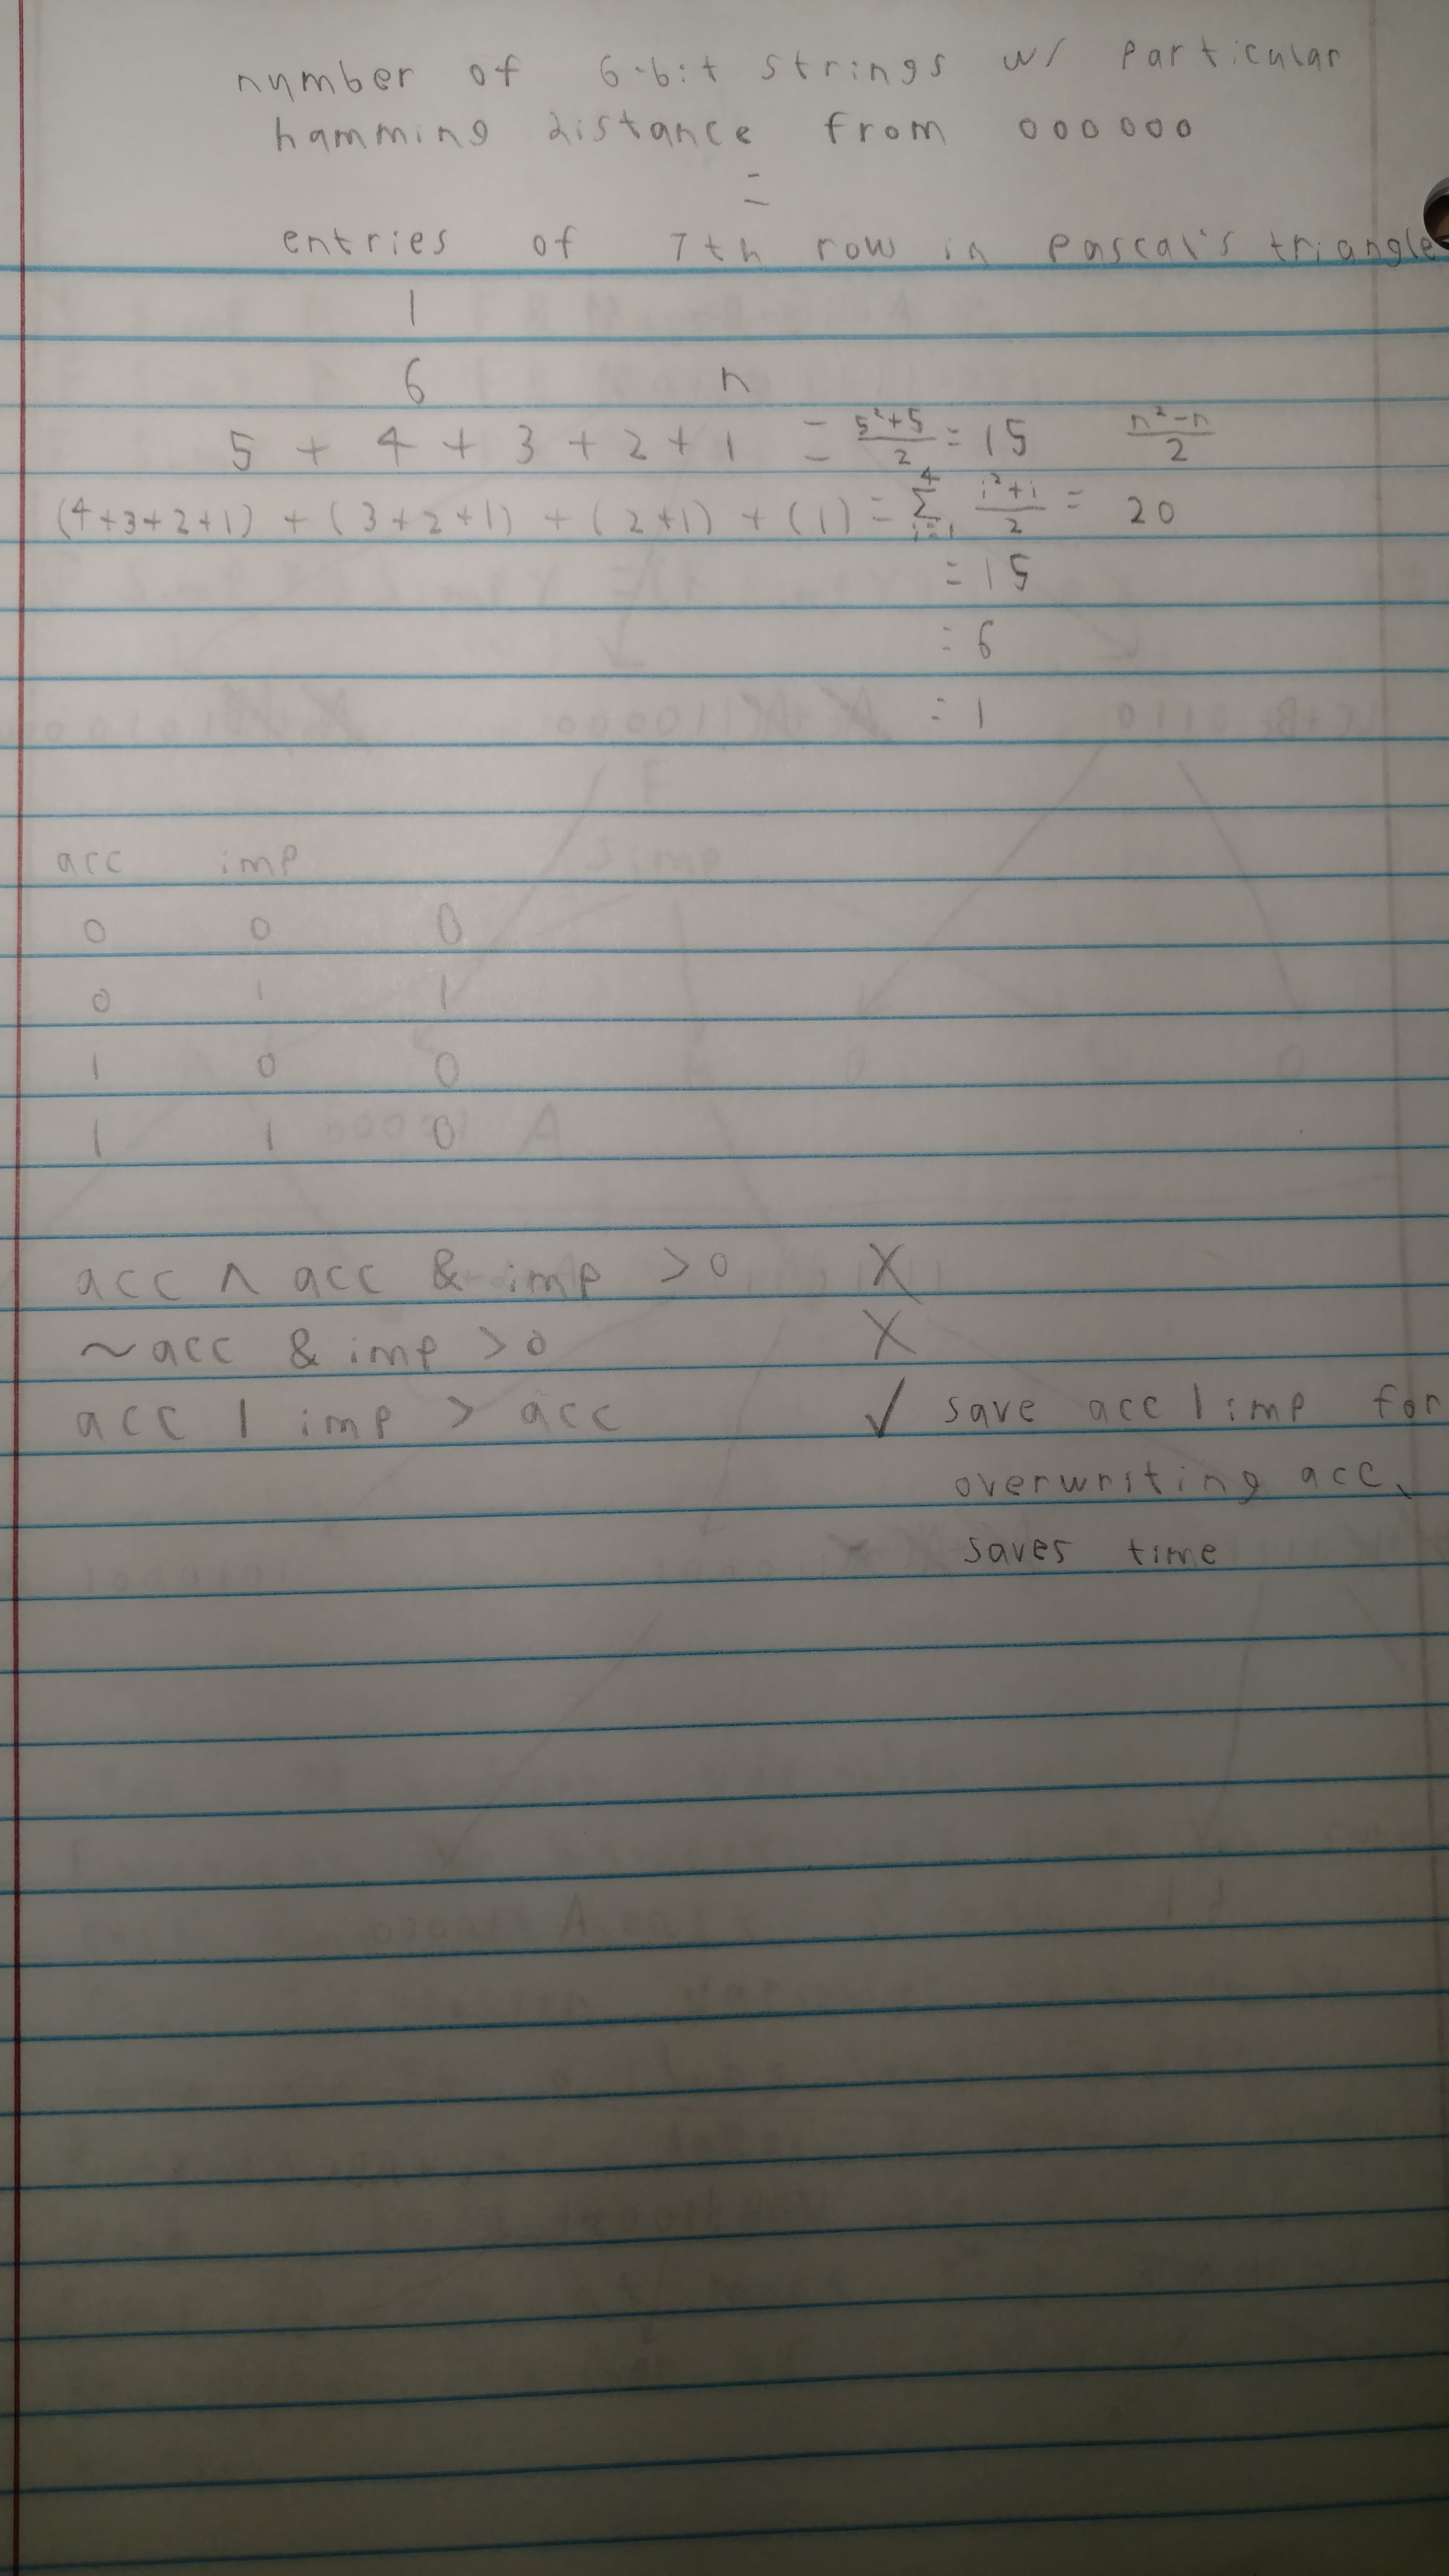 number of 6-bit strings w/ particular
hamming distance from 000000
=
entries of 7th row in pascal's triangle
1
6 n
5 + 4 + 3 + 2 + 1 = (5²+5)/2 = 15 (n²-n)/2
(4+3+2+1) + (3+2+1) + (2+1) + (1) = Σ_{i=1}^{4} (i²+i)/2 = 20
= 15
= 6
= 1
acc imp
0 0 0
0 1 1
1 0 0
1 1 0
acc ^ acc & imp > 0 X
~acc & imp > 0 X
acc | imp > acc ✓ save acc | imp for
overwriting acc,
saves time